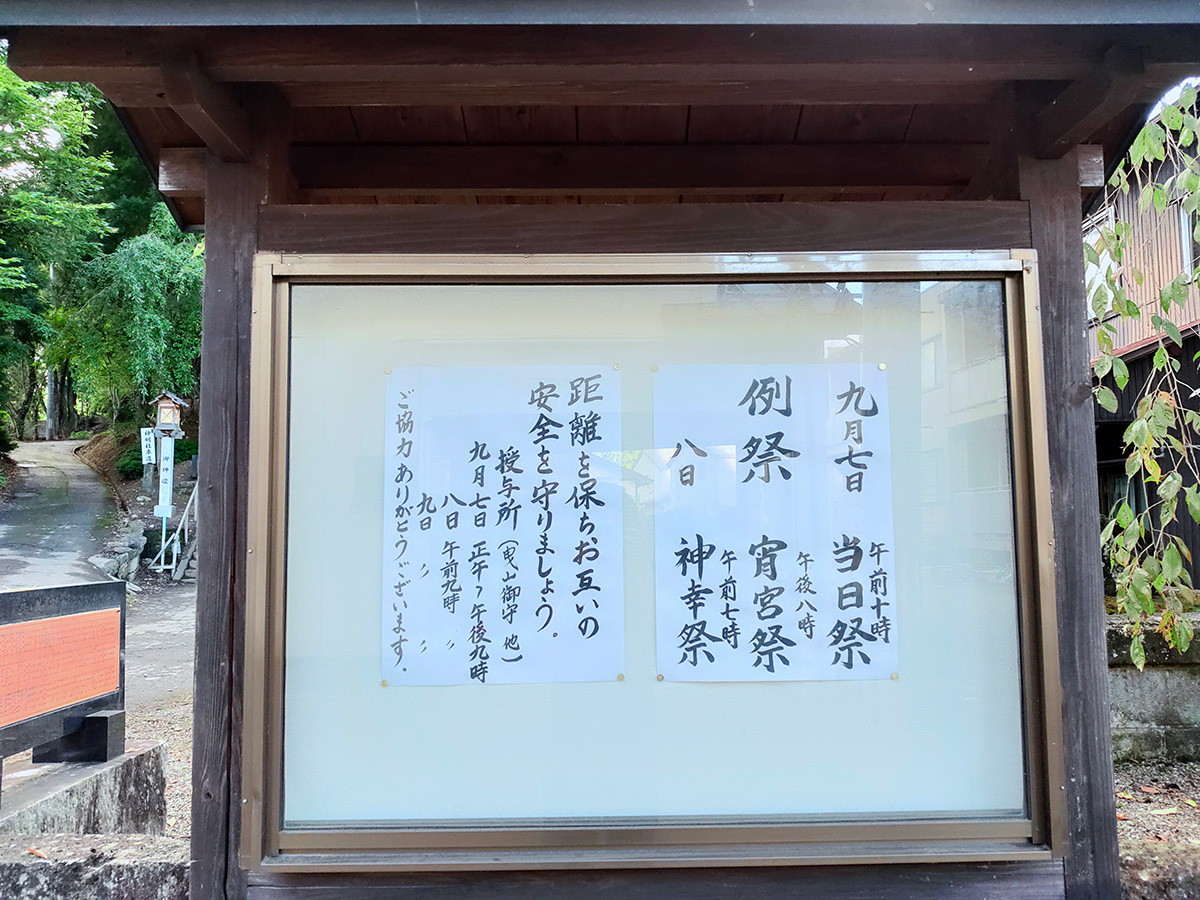 九月七日 午前十時 当日祭
例祭 午後八時 宵宮祭
八日 午前七時 神幸祭
距離を保ち、お互いの
安全を守りましょう。
授与所(曳山御守 他)
九月七日 正午〜午後九時
八日 午前九時 〃
九日 〃 〃
ご協力ありがとうございます.
神明社車道